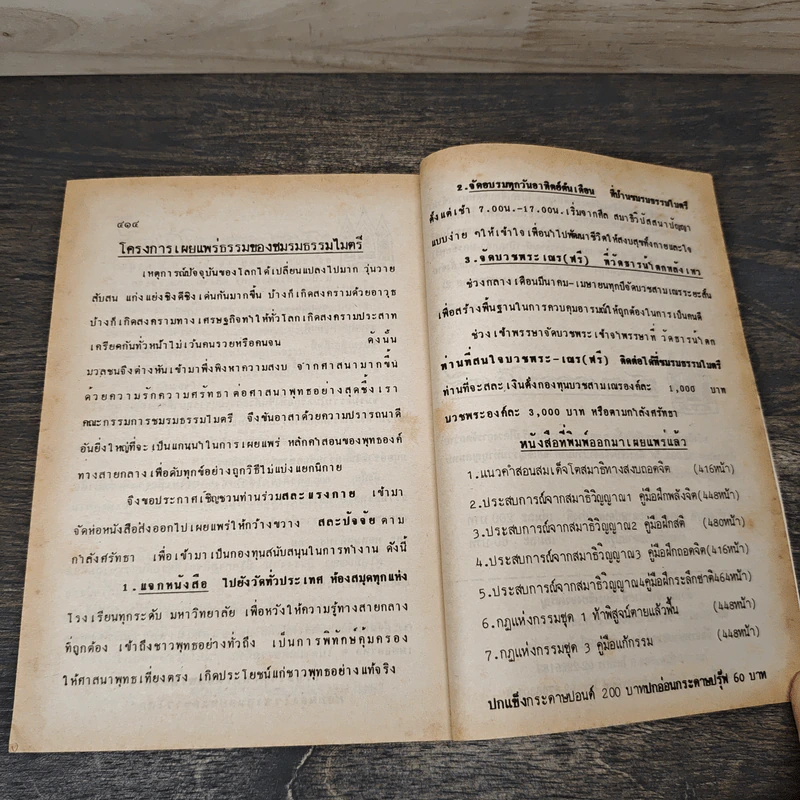 ๔๑๔
โครงการเผยแพร่ธรรมของชมรมธรรมไมตรี
เหตุการณ์ปัจจุบันของโลกได้เปลี่ยนแปลงไปมาก วุ่นวาย
สับสน แก่งแย่งชิงดีชิงเด่นกันมากขึ้น บ้างก็เกิดสงครามด้วยอาวุธ
บ้างก็เกิดสงครามทางเศรษฐกิจทำให้ทั่วโลกเกิดสงครามประสาท
เครียดกันทั่วหน้าไม่เว้นคนรวยหรือคนจน ดังนั้น
มวลชนจึงต่างหันเข้ามาพึ่งพิงหาความสงบ จากศาสนามากขึ้น
ด้วยความรักความศรัทธาต่อศาสนาพุทธอย่างสุดซึ้ง เรา
คณะกรรมการชมรมธรรมไมตรี จึงขันอาสาด้วยความปรารถนาดี
อันยิ่งใหญ่ที่จะเป็นแกนนำในการเผยแพร่ หลักคำสอนของพุทธองค์
ทางสายกลาง เพื่อดับทุกข์อย่างถูกวิธีไม่แบ่งแยกนิกาย
จึงขอประกาศเชิญชวนท่านร่วมสละแรงกาย เข้ามา
จัดห่อหนังสือส่งออกไปเผยแพร่ให้กว้างขวาง สละปัจจัย ตาม
กำลังศรัทธา เพื่อเข้ามาเป็นกองทุนสนับสนุนในการทำงาน ดังนี้
1. แจกหนังสือ ไปยังวัดทั่วประเทศ ห้องสมุดทุกแห่ง
โรงเรียนทุกระดับ มหาวิทยาลัย เพื่อหวังให้ความรู้ทางสายกลาง
ที่ถูกต้อง เข้าถึงชาวพุทธอย่างทั่วถึง เป็นการพิทักษ์คุ้มครอง
ให้ศาสนาพุทธเที่ยงตรง เกิดประโยชน์แก่ชาวพุทธอย่างแท้จริง
2. จัดอบรมทุกวันอาทิตย์ต้นเดือน ที่บ้านชมรมธรรมไมตรี
ตั้งแต่เช้า 7.00น.-17.00น. เริ่มจากศีล สมาธิวิปัสสนาปัญญา
แบบง่าย ๆ ให้เข้าใจ เพื่อนำไปพัฒนาชีวิตให้สงบสุขทั้งกายและใจ
3. จัดบวชพระ เณร(ฟรี) ที่วัดธารน้ำตกพลังเทา
ช่วงกลางเดือนมีนาคม-เมษายนทุกปีจัดบวชสามเณรระยะสั้น
เพื่อสร้างพื้นฐานในการควบคุมอารมณ์ให้ถูกต้องในการเป็นคนดี
ช่วงเข้าพรรษาจัดบวชพระเข้าจำพรรษาที่ วัดธารน้ำตก
ท่านที่สนใจบวชพระ-เณร(ฟรี) ติดต่อได้ที่ชมรมธรรมไมตรี
ท่านที่จะสละเงินตั้งกองทุนบวชสามเณรองค์ละ 1,000 บาท
บวชพระองค์ละ 3,000 บาท หรือตามกำลังศรัทธา
หนังสือที่พิมพ์ออกมาเผยแพร่แล้ว
1. แนวคำสอนสมเด็จโตสมาธิทางสงบถอดจิต (416หน้า)
2. ประสบการณ์จากสมาธิวิญญาณ1 คู่มือฝึกพลังจิต(448หน้า)
3. ประสบการณ์จากสมาธิวิญญาณ2 คู่มือฝึกสติ (480หน้า)
4. ประสบการณ์จากสมาธิวิญญาณ3 คู่มือฝึกถอดจิต(416หน้า)
5. ประสบการณ์จากสมาธิวิญญาณ4คู่มือฝึกระลึกชาติ464หน้า)
6. กฎแห่งกรรมชุด 1 ท้าพิสูจน์ตายแล้วฟื้น (448หน้า)
7. กฎแห่งกรรมชุด 3 คู่มือแก้กรรม (448หน้า)
ปกแข็งกระดาษปอนด์ 200 บาทปกอ่อนกระดาษปรุ๊ฟ 60 บาท